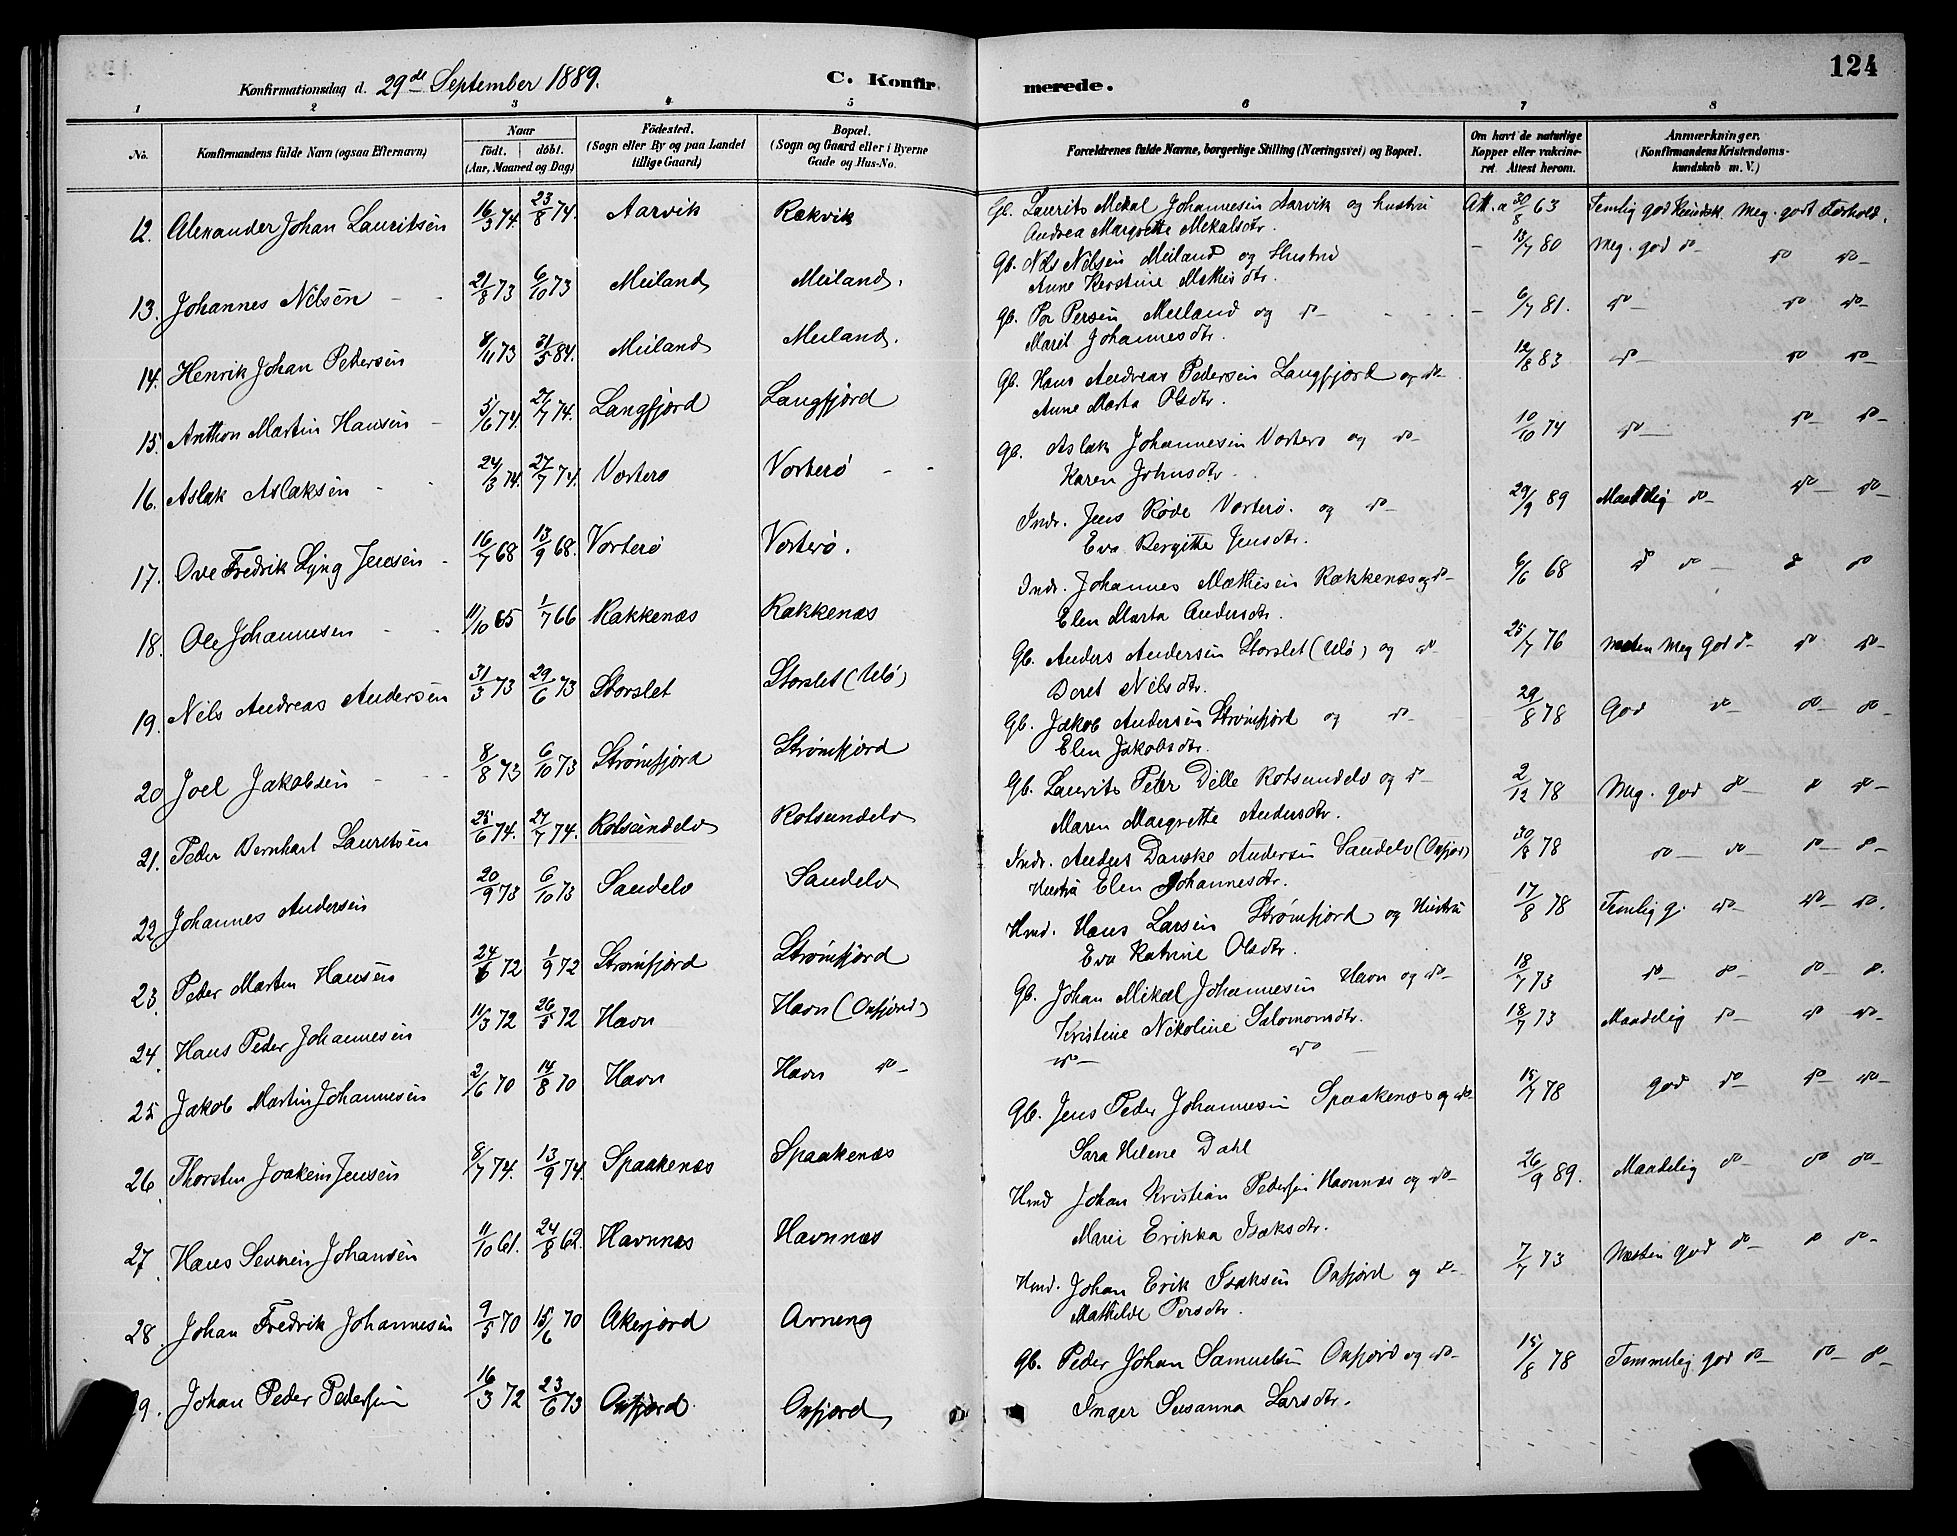 Konfirmationsdag d. 29de September 1889. C. Konfirmerede. 124
1 2 3 4 5 6 7 8
No. Konfirmandens fulde Navn (ogsaa Efternavn) Naar født. døbt. (Aar, Maaned og Dag) Fødested. (Sogn eller By og paa Landet tillige Gaard) Bopæl. (Sogn og Gaard eller i Byerne Gade og Hus-No. Forældrenes fulde Navne, borgerlige Stilling (Næringsvei) og Bopæl. Om havt de naturlige Kopper eller vakcineret. Attest herom. Anmærkninger. (Konfirmandens Kristendomskundskab m. V.)
12. Alexander Johan Lauritsen 16/3 74. 23/8 74. Aarvik Rækvik Gb. Laurits Mekal Johannesen Aarvik og hustru Att. a 30/8 63 Temlig god Kundsk. Meg. godt Forhold.
Andrea Margrethe Mekalsdtr.
13. Johannes Nilsen 21/8 73 6/10 73 Meiland Meiland. Gb. Nils Nilsen Meiland og Hustru - 13/7 80 Meg. god do do do
Anne Kerstine Mathisdtr.
14. Henrik Johan Pedersen 8/11 73 31/5 84. Meiland Meiland. Gb. Per Persen Meiland og do - 6/7 81. do do do
Marit Johannesdtr.
15. Anthon Martin Hansen 5/6 74. 27/7 74. Langfjord Langfjord Gb. Hans Andreas Pedersen Langfjord og do 12/8 83 do do do
Anne Marta Olsdtr.
16. Aslak Aslaksen 24/3 74. 27/7 74. Vorterø Vorterø Gb. Aslak Johannesen Vorterø og do 10/10 74 do do do
Karen Johnsdtr.
17. Ove Fredrik Lyng Jensen 16/7 68 13/9 68. Vorterø Vorterø. Indr. Jens Røde Vorterø. og do 29/9 89 Maadelig do do do
Eva Bergitte Jensdtr.
18. Ole Johannesen 11/10 65 1/7 66 Rakkenæs Rakkenæs Indr. Johannes Mathisen Rakkenæs og do 6/6 68 do do do do
Elen Marta Andersdtr.
19. Nils Andreas Andersen 31/3 73 29/6 73 Storslet Storslet (Ulø) Gb. Anders Andersen Storslet (Ulø) og do 25/7 76 Næsten Meg god do do do
Beret Nilsdtr.
20 Joel Jakobsen 8/8 73 6/10 73 Strømfjord Strømfjord Gb. Jakob Andersen Strømfjord og do 29/8 78 God do do do
Elen Jakobsdtr.
21. Peder Bernhart Lauritsen 25/6 74. 27/7 74. Rotsundelv Rotsundelv Gb. Laurits Peter Dille Rotsundelv og do 2/12 78 Meg. god do do do
Maren Margrethe Andersdtr.
22 Johannes Andersen 20/9 73 6/10 73 Sandelv Sandelv Indr. Anders Danske Andersen Sandelv (Oxfjor) 30/8 78 do do do do
Hustru Elen Johannesdtr.
23. Peder Marten Hansen 24/6 72 1/9 72 Strømfjord Strømfjord Hmd. Hans Larsen Strømfjord og Hustru 17/8 78 Temlig g. do do do.
Eva Katrine Olsdtr.
24. Hans Peder Johannesen 11/3 72 26/5 72 Havn Havn (Oxfjord) Gb. Johan Mikal Johannesen Havn og do 18/7 73 do do do do.
Kristine Nikoline Salomonsdtr.
25 Jakob Martin Johannesen 2/6 70 14/8 70 Havn Havn do do do 18/7 73 Maadelig do do do
26. Thorsten Joakim Jensen 8/7 74. 13/9 74. Spaakenæs Spaakenæs Gb. Jens Peder Johannesen Spaakenæs og do 15/7 78 god do do do
Sara Helene Dahl
27. Hans Severin Johansen 11/10 61. 24/8 62. Havnnæs Havnnæs Hmd Johan Kristian Pedersen Havnnæs og do 26/9 89. Maadelig do do do
Marie Erikka Isaksdtr.
28. Johan Fredrik Johannesen 9/5 70 15/6 70 Akerjord Avneng Hmd. Johan Erik Isaksen Oxfjord og do 7/7 73 Næsten god do do do
Mathilde Persdtr.
29. Johan Peder Pedersen 16/3 72 23/6 73 Oxfjord Oxfjord Gb. Peder Johan Samuelsen Oxfjord og do 15/8 78 Temmelig god do do do
Inger Susanna Larsdtr.